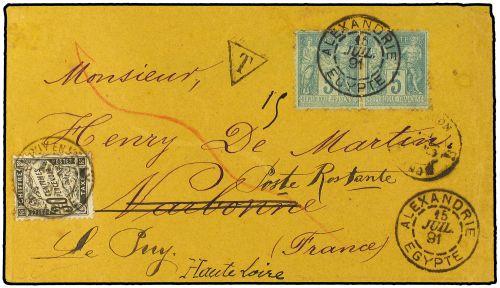 ALEXANDRIE
15
JUIL
91
EGYPTE
5
5
T
Monsieur,
15
Henry De Martin
Poste Restante
Narbonne
Le Puy (France)
Haute Loire
CHIFFRE
TAXE
ALEXANDRIE
15
JUIL
91
EGYPTE